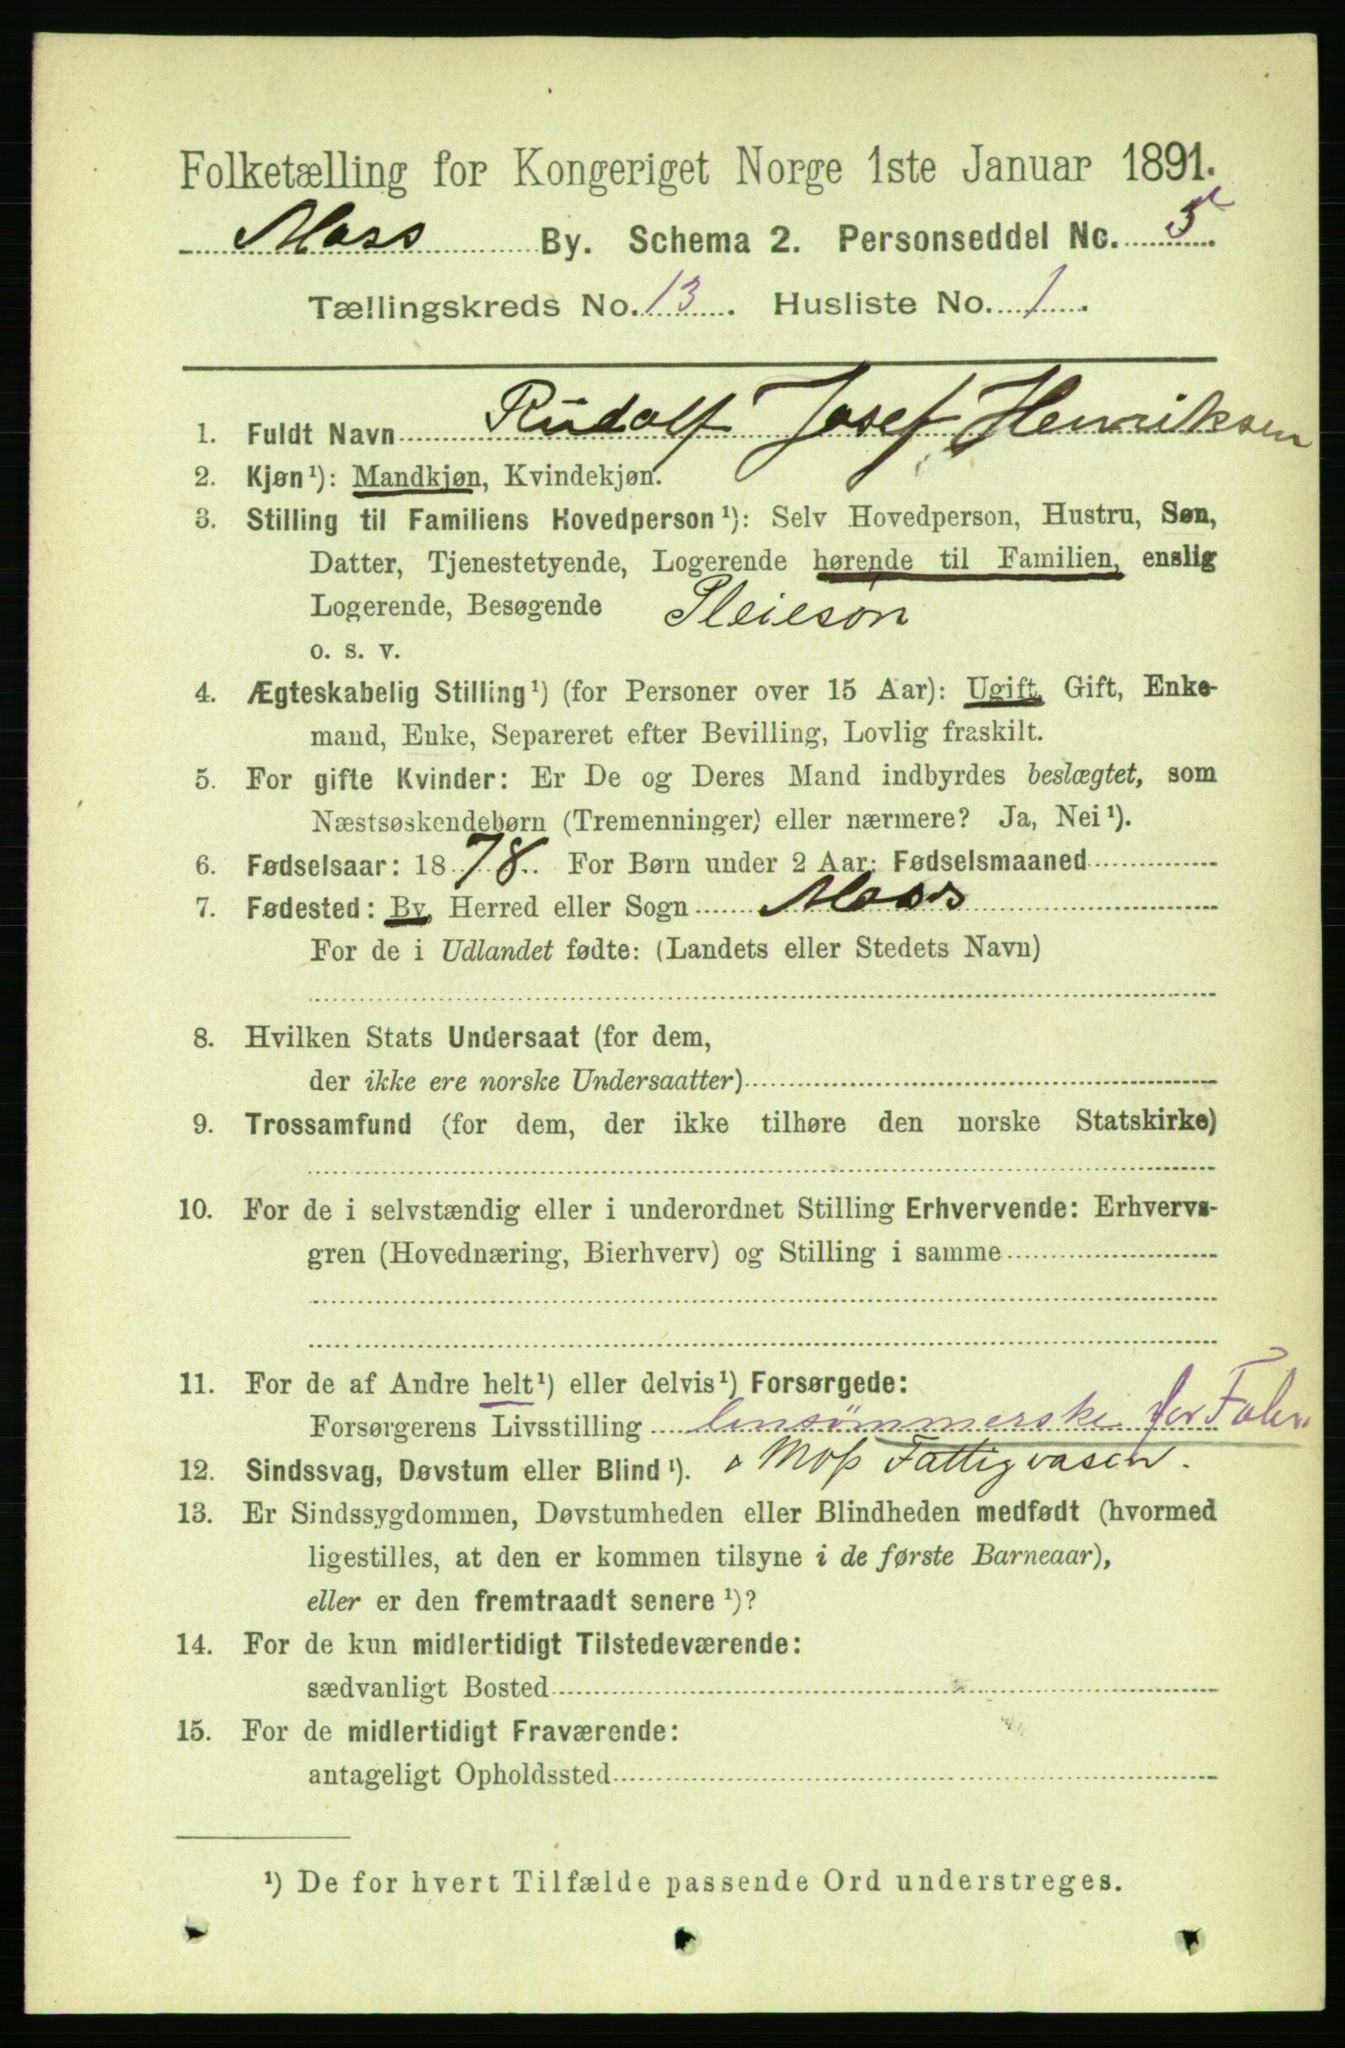 Folketælling for Kongeriget Norge 1ste Januar 1891.
Moss By. Schema 2. Personseddel No. 5
Tællingskreds No. 13. Husliste No. 1.
1. Fuldt Navn Rudolf Josef Henriksen
2. Kjøn¹): Mandkjøn, Kvindekjøn.
3. Stilling til Familiens Hovedperson¹): Selv Hovedperson, Hustru, Søn,
Datter, Tjenestetyende, Logerende hørende til Familien, enslig
Logerende, Besøgende Pleiesøn
o. s. v.
4. Ægteskabelig Stilling¹) (for Personer over 15 Aar): Ugift, Gift, Enke-
mand, Enke, Separeret efter Bevilling, Lovlig fraskilt.
5. For gifte Kvinder: Er De og Deres Mand indbyrdes beslægtet, som
Næstsøskendebørn (Tremenninger) eller nærmere? Ja, Nei¹).
6. Fødselsaar: 1878. For Børn under 2 Aar: Fødselsmaaned
7. Fødested: By, Herred eller Sogn Moss
For de i Udlandet fødte: (Landets eller Stedets Navn)
8. Hvilken Stats Undersaat (for dem,
der ikke ere norske Undersaatter)
9. Trossamfund (for dem, der ikke tilhøre den norske Statskirke)
10. For de i selvstændig eller i underordnet Stilling Erhvervende: Erhvervs-
gren (Hovednæring, Bierhverv) og Stilling i samme
11. For de af Andre helt¹) eller delvis¹) Forsørgede:
Forsørgerens Livsstilling Linsømmerske for
12. Sindssvag, Døvstum eller Blind¹). Moss Fattigvæsen.
13. Er Sindssygdommen, Døvstumheden eller Blindheden medfødt (hvormed
ligestilles, at den er kommen tilsyne i de første Barneaar),
eller er den fremtraadt senere¹)?
14. For de kun midlertidigt Tilstedeværende:
sædvanligt Bosted
15. For de midlertidigt Fraværende:
antageligt Opholdssted
¹) De for hvert Tilfælde passende Ord understreges.